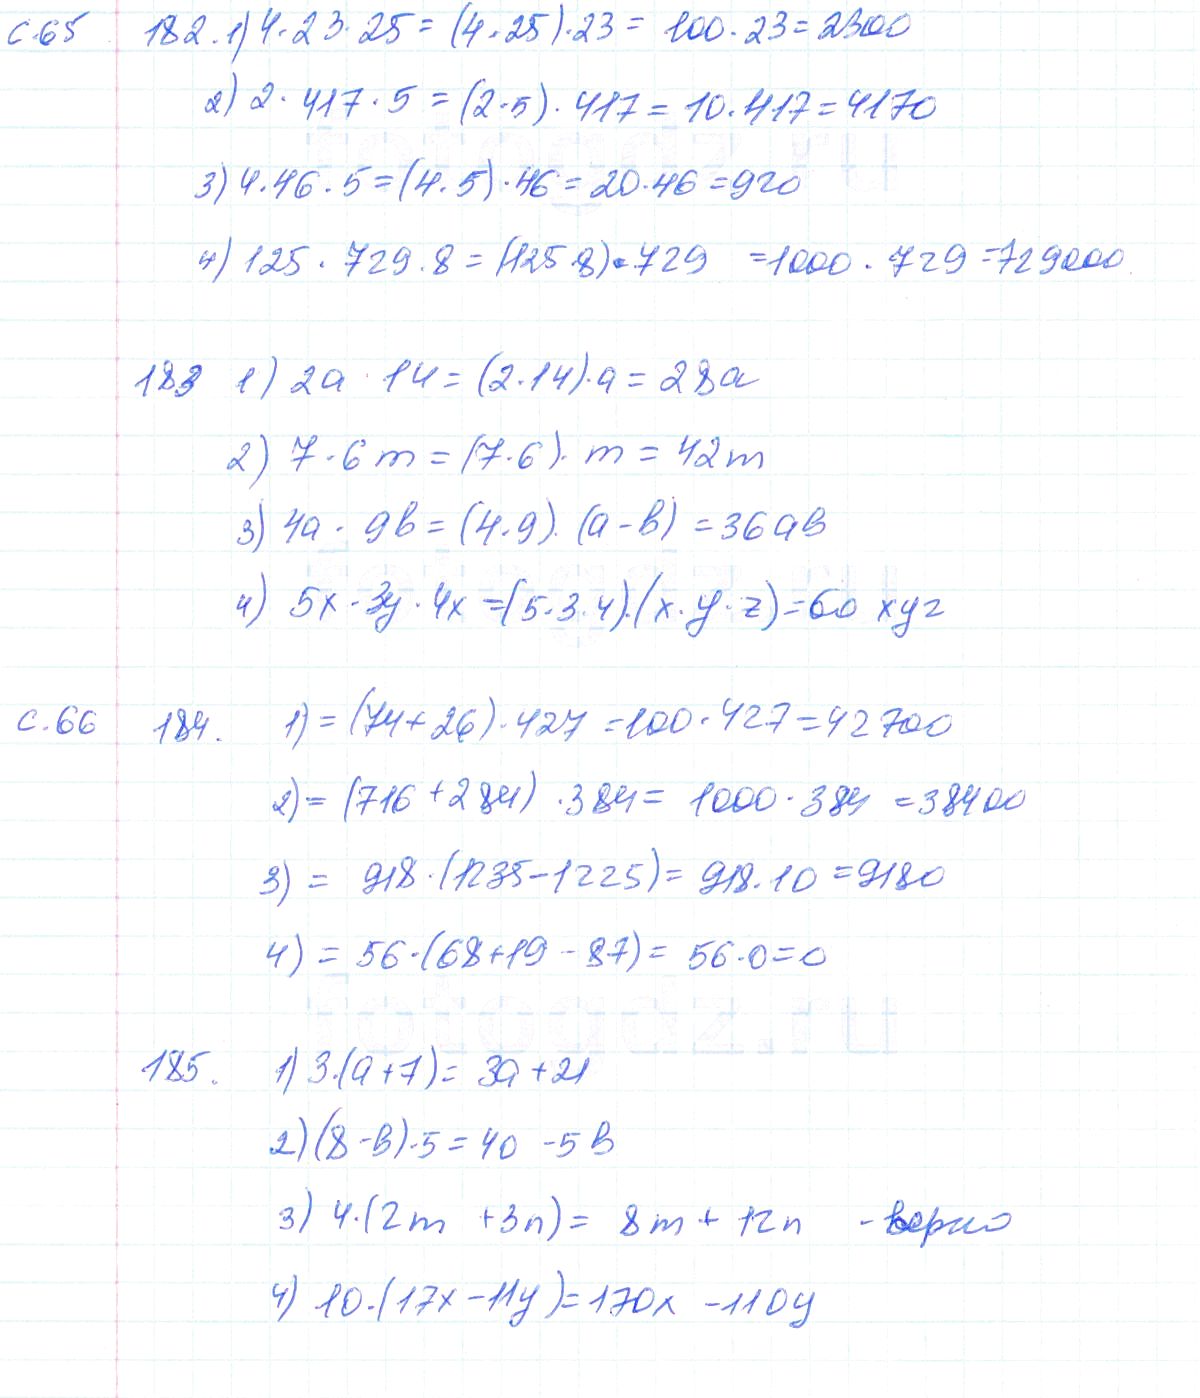 с.65 182. 1) 4·23·25 = (4·25)·23 = 100·23 = 2300
2) 2·417·5 = (2·5)·417 = 10·417 = 4170
3) 4·46·5 = (4·5)·46 = 20·46 = 920
4) 125·729·8 = (125·8)·729 = 1000·729 = 729000
183 1) 2a·14 = (2·14)·a = 28a
2) 7·6m = (7·6)·m = 42m
3) 4a·9b = (4·9)·(a-b) = 36ab
4) 5x·3y·4x = (5·3·4)·(x·y·z) = 60xyz
с.66 184. 1) = (74+26)·427 = 100·427 = 42700
2) = (716+284)·384 = 1000·384 = 38400
3) = 918·(1235-1225) = 918·10 = 9180
4) = 56·(68+19-87) = 56·0 = 0
185. 1) 3·(a+7) = 3a+21
2) (8-b)·5 = 40-5b
3) 4·(2m+3n) = 8m+12n - верно
4) 10·(17x-11y) = 170x-110y
fotogdz.ru
fotogdz.ru
fotogdz.ru